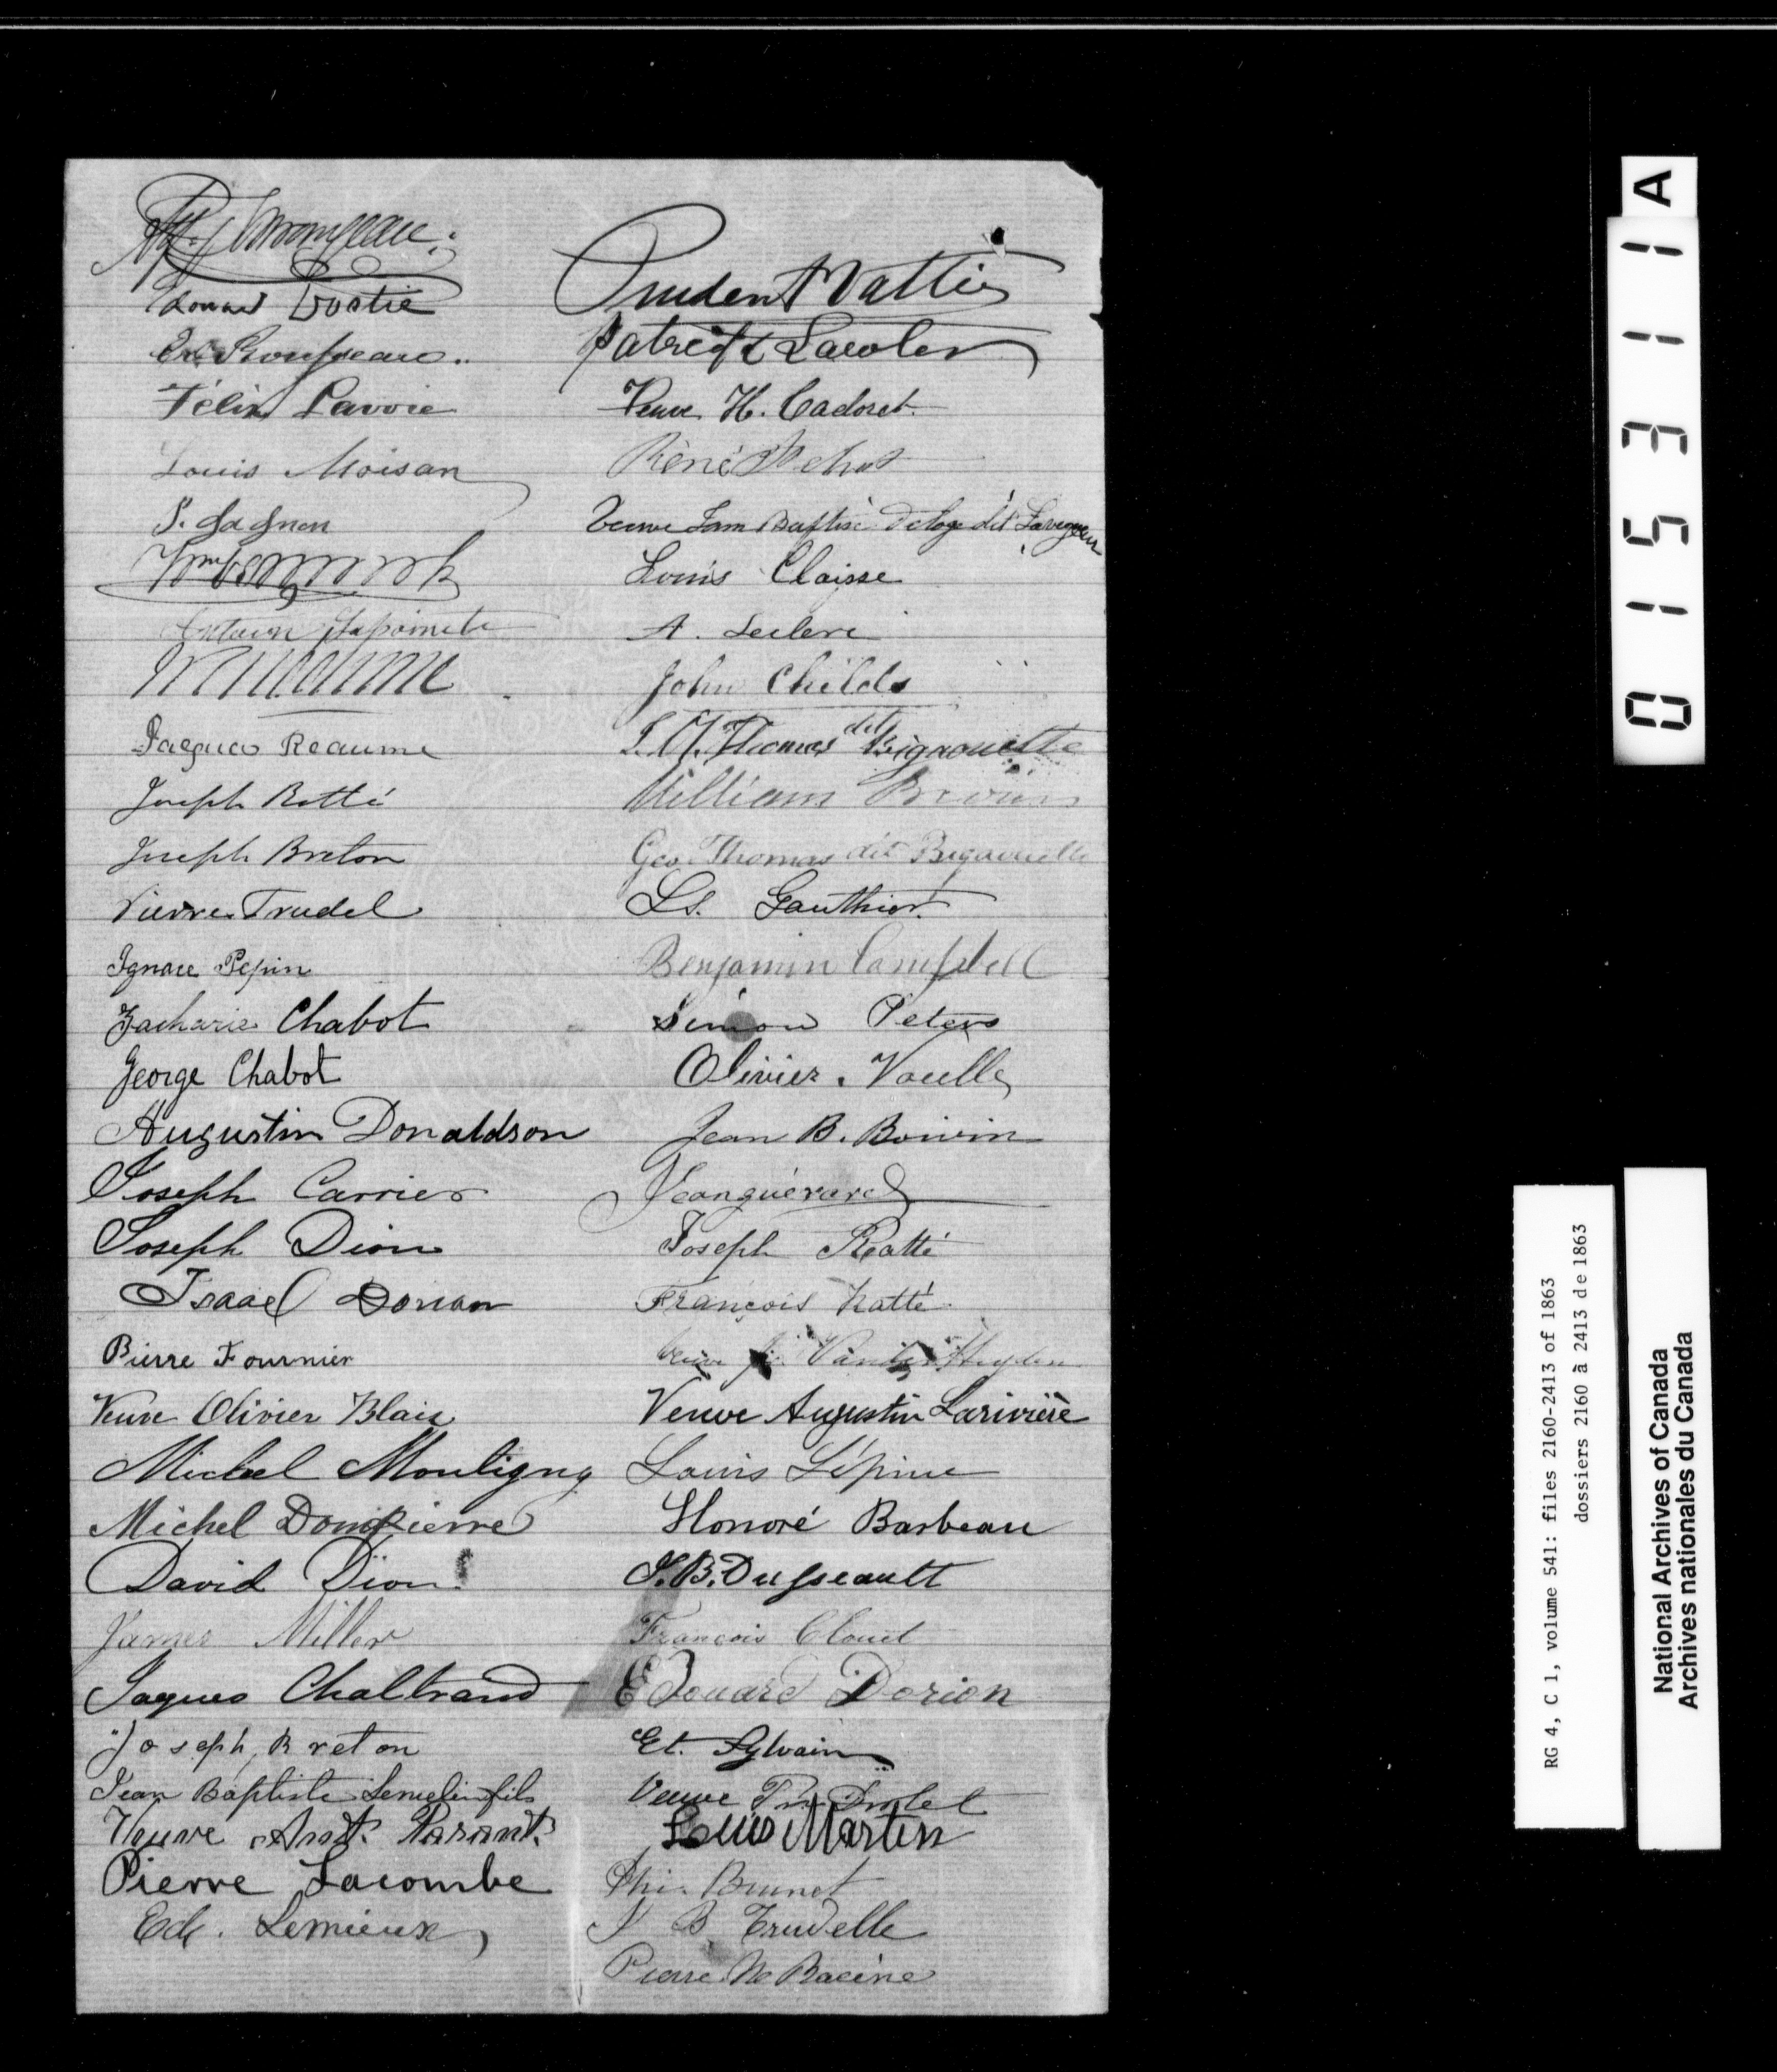 Prudent Vallée
Dostie
Patrick Lawler
Rousseau
Félix Lavoie
Veuve H. Cadoret
Louis Moisan
Réné
P. Gagnon
Veuve Jean Baptise Deloge dit Lavigueur
Louis Claisse
Antoine Lapointe
A. Leclerc
John Childs
Jacques Reaume
Thomas dit Bigaouette
Joseph Ratté
William Brown
Joseph Breton
Geo. Thomas dit Bigaouette
Pierre Trudel
Ls. Gauthier
Ignace Pepin
Benjamin Campbell
Zacharie Chabot
Simon Peters
George Chabot
Olivier Vacelle
Augustin Donaldson
Jean B. Boivin
Joseph Carrier
Jean guérard
Joseph Dion
Joseph Reatté
Isaac Dorian
François Ratté
Pierre Fournier
Veuve
Veuve Olivier Blais
Veuve Augustin Larivière
Michel Montigny
Louis Lépine
Michel Dompierre
Honoré Barbeau
David Dion
J. B. Dusseault
James Miller
François Clouet
Jaques Chaltrand
Edouard Dorion
Joseph Breton
Et. Sylvain
Jean Baptiste Lemelin fils
Veuve Drolet
Veuve Ant. Parant.
Louis Martin
Pierre Lacombe
Phi. Brunet
Ed. Lemieux
J B Trudelle
Pierre Racine
A
015311
RG 4, C 1, volume 541: files 2160-2413 of 1863
dossiers 2160 à 2413 de 1863
National Archives of Canada
Archives nationales du Canada